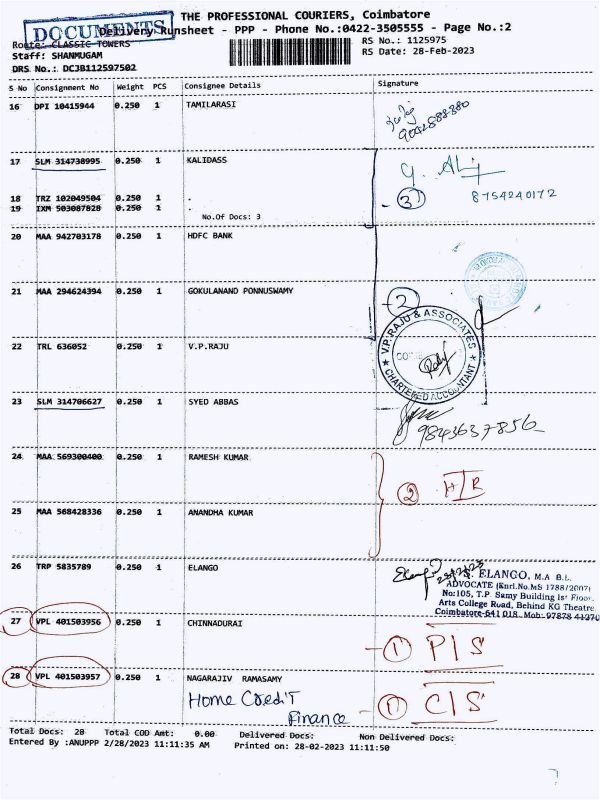 DOCUMENTS
THE PROFESSIONAL COURIERS, Coimbatore
Delivery Runsheet - PPP - Phone No.:0422-3505555 - Page No.:2
Route: CLASSIC TOWERS
RS No.: 1125975
Staff: SHANMUGAM
RS Date: 28-Feb-2023
DRS No.: DCJB112597502
S No Consignment No Weight PCS Consignee Details Signature
16 DPI 10415944 0.250 1 TAMILARASI
17 SLM 314738995 0.250 1 KALIDASS
18 TRZ 102049504 0.250 1 .
8754240172
19 IXM 503087828 0.250 1 .
3
No.Of Docs: 3
20 MAA 942703178 0.250 1 HDFC BANK
21 MAA 294624394 0.250 1 GOKULANAND PONNUSWAMY
2
V.P.RAJU & ASSOCIATES
CHARTERED ACCOUNTANT
22 TRL 636052 0.250 1 V.P.RAJU
23 SLM 314706627 0.250 1 SYED ABBAS
9843637856
24 MAA 569300400 0.250 1 RAMESH KUMAR
2
25 MAA 568428336 0.250 1 ANANDHA KUMAR
26 TRP 5835789 0.250 1 ELANGO
ELANGO, M.A B.L.
ADVOCATE (Enrl.No.MS 1788/2007)
No:105, T.P. Samy Building Ist Floor,
Arts College Road, Behind KG Theatre
Coimbatore-641 018 Mob: 97878 41270
27 VPL 401503956 0.250 1 CHINNADURAI
1 P/S
28 VPL 401503957 0.250 1 NAGARAJIV RAMASAMY
Home Credit
Finance - 1 C/S
Total Docs: 20 Total COD Amt: 0.00 Delivered Docs: Non Delivered Docs:
Entered By :ANUPPP 2/28/2023 11:11:35 AM Printed on: 28-02-2023 11:11:50